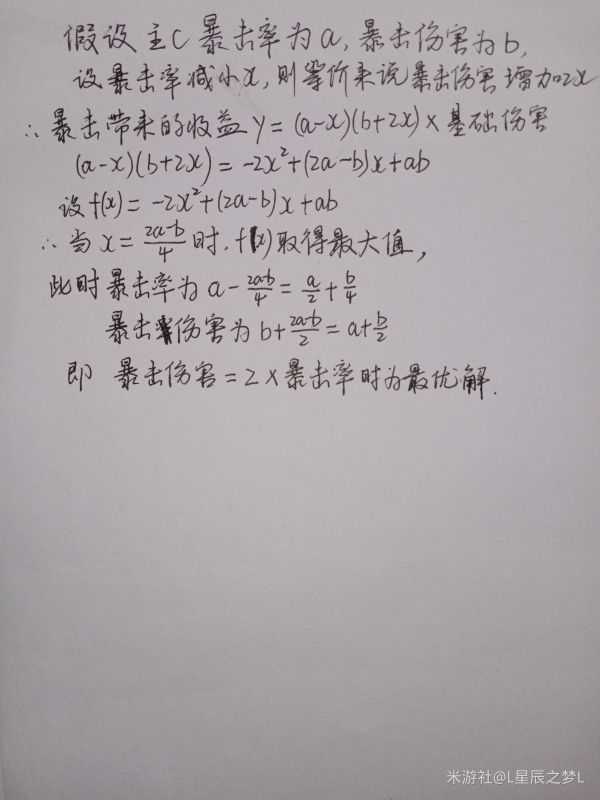 假设主C暴击率为a,暴击伤害为b,
设暴击率减小x,则等价来说暴击伤害增加2x
∴暴击带来的收益Y=(a-x)(b+2x)×基础伤害
(a-x)(b+2x)=-2x²+(2a-b)x+ab
设f(x)=-2x²+(2a-b)x+ab
∴当x=\frac{2a-b}{4}时,f(x)取得最大值,
此时暴击率为a-\frac{2a-b}{4}=\frac{a}{2}+\frac{b}{4}
暴击伤害为b+\frac{2a-b}{2}=a+\frac{b}{2}
即 暴击伤害=2×暴击率时为最优解.
米游社@L星辰之梦L